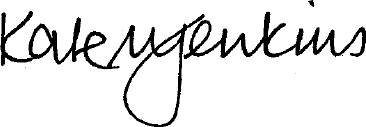 Kate Jenkins